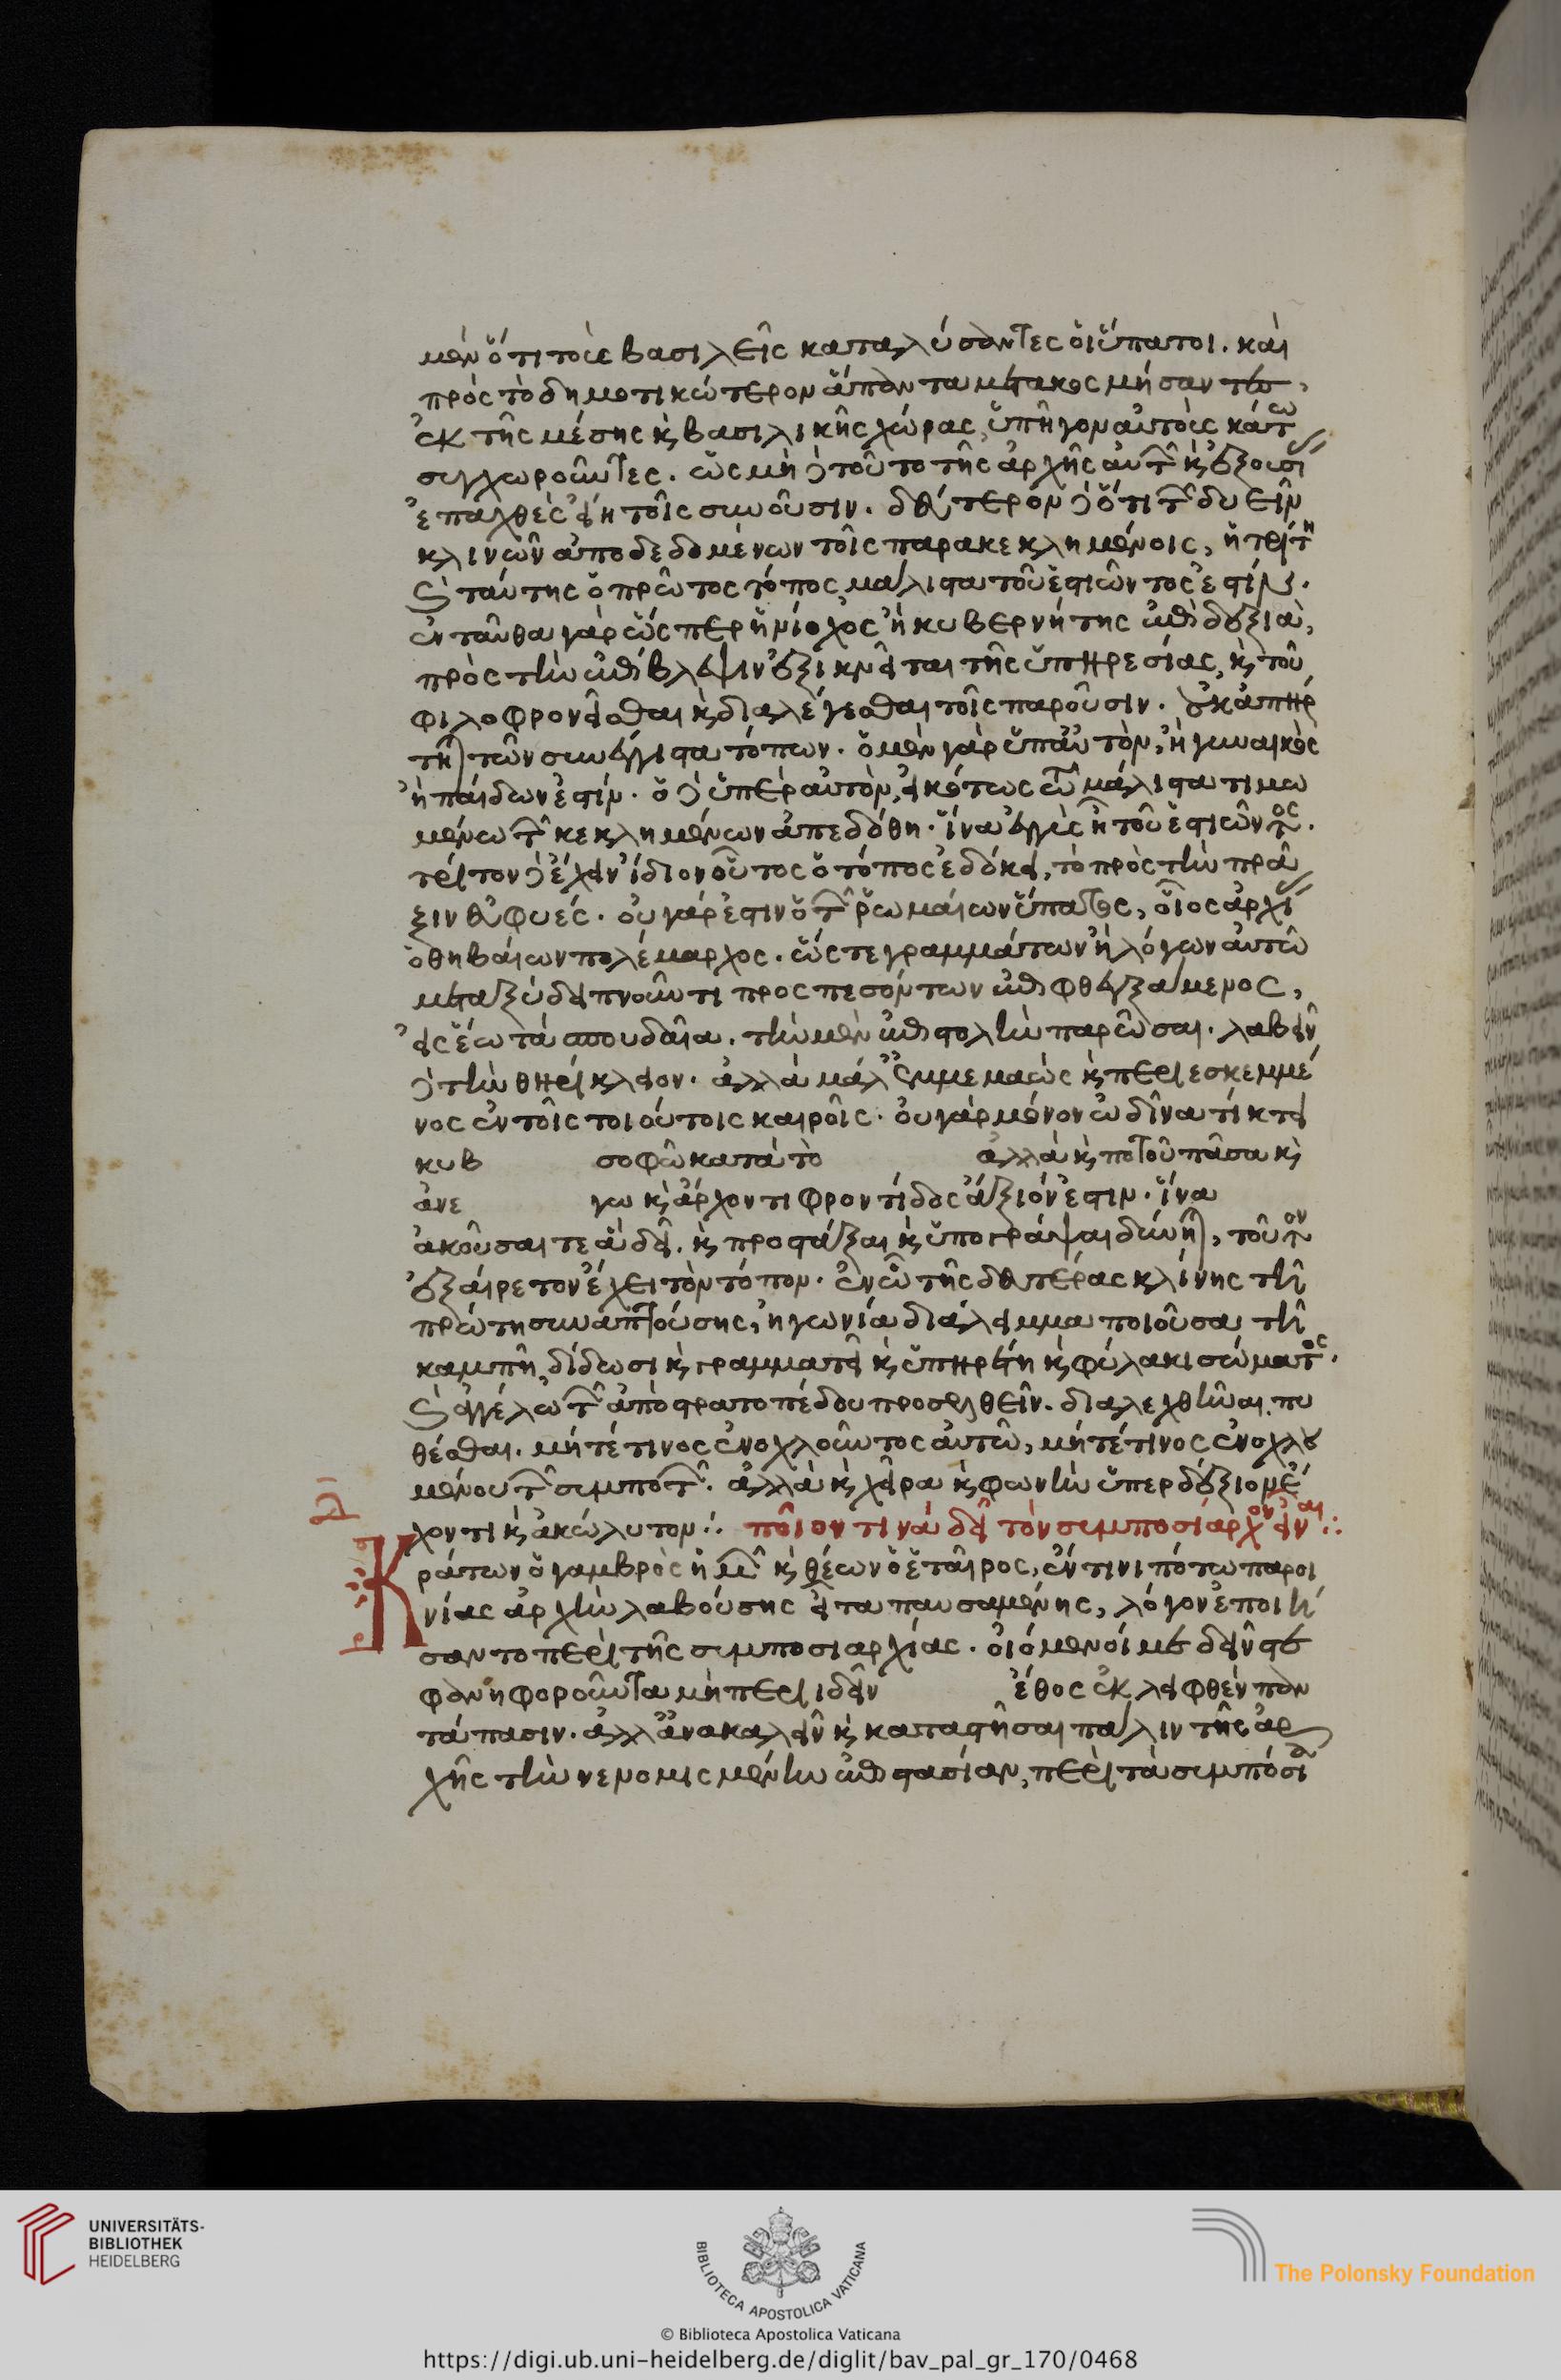 μὲν ὅτι τοὺς βασιλεῖς καταλύσαντες οἱ ὕπατοι. καὶ
πρὸς τὸ δημοτικώτερον ἅπαντα μετακοσμήσαντες,
ἐκ τῆς μέσης καὶ βασιλικῆς χώρας, ὑπῆγον αὐτοὺς κάτω
συγχωροῦντες. ὡς μὴ δὲ τοῦτο τῆς ἀρχῆς αὐτῶν καὶ ἐξουσί
ἐπαχθὲς εἴη τοῖς συνοῦσιν. δεύτερον δὲ ὅτι τῶν δυεῖν
κλινῶν ἀποδεδομένων τοῖς παρακεκλημένοις, ἡ τρίτη
καὶ ταύτης ὁ πρῶτος τόπος μάλιστα τοῦ ἑστιῶντος ἐστίν.
ἐνταῦθα γὰρ ὥσπερ ἡνίοχος ἢ κυβερνήτης ἐπὶ δεξιὰ,
πρὸς τὴν ἐπίβλεψιν ἐξικνεῖται τῆς ὑπηρεσίας, καὶ τοῦ
φιλοφρονεῖσθαι καὶ διαλέγεσθαι τοῖς παροῦσιν. οὐκ ἀπήρ
τηται τῶν συνέγγιστα τόπων. ὁ μὲν γὰρ ὑπ' αὐτὸν, ἢ γυναικὸς
ἢ παίδων ἐστίν. ὁ δὲ ὑπὲρ αὐτὸν, εἰκότως τῷ μάλιστα τιμω
μένῳ τῶν κεκλημένων ἀπεδόθη. ἵνα ἐγγὺς ᾖ τοῦ ἑστιῶντος.
τρίτον δὲ ἔχειν ἴδιον οὗτος ὁ τόπος ἐδόκει, τὸ πρὸς τὴν πρᾶ
ξιν εὐφυές. οὐ γάρ ἐστιν ὁ τῶν ῥωμαίων ὕπατος, οἷος ἀρχί
ὁ θηβαίων πολέμαρχος. ὥστε γραμμάτων ἢ λόγων αὐτῷ
μεταξὺ δειπνοῦντι προσπεσόντων ἐπιφθεγξάμενος,
εἰς ἕω τὰ σπουδαῖα. τὴν μὲν ἐπιστολὴν παρῶσαι. λαβεῖν
δὲ τὴν θηρίκλειον. ἀλλὰ μάλ' ἐμμεμαὼς καὶ περιεσκεμμέ
νος ἐν τοῖς τοιούτοις καιροῖς. οὐ γὰρ μόνον ὠδῖνα τίκτει
κυβ σοφῷ κατὰ τὸ ἀλλὰ καὶ ποτοῦ πᾶσα καὶ
ἀνε γω καὶ ἄρχοντι φροντίδος ἄξιόν ἐστιν. ἵνα
ἀκοῦσαι τε ἃ δεῖ. καὶ προστάξαι καὶ ὑπογράψαι δύνηται, τοῦτον
ἐξαίρετον ἔχει τὸν τόπον. ἐν ᾧ τῆς δευτέρας κλίνης τῇ
πρώτῃ συναπτούσης, ἡ γωνία διάλειμμα ποιοῦσα τῇ
καμπῇ, δίδωσι καὶ γραμματεῖ καὶ ὑπηρέτῃ καὶ φύλακι σώματος.
καὶ ἀγγέλῳ τῶν ἀπὸ στρατοπέδου προσελθεῖν. διαλεχθῆναι. πυ
θέσθαι. μήτέ τινος ἐνοχλοῦντος αὐτῷ, μήτέ τινος ἐνοχλου
μένου τῶν συμποτῶν. ἀλλὰ καὶ χεῖρα καὶ φωνὴν ὑπερδέξιον ἔ
χοντι καὶ ἀκώλυτον: ποῖον τινὰ δεῖ τὸν συμποσίαρχον εἶναι:
Κράτων ὁ γαμβρὸς ἡμῶν καὶ θέων ὁ ἑταῖρος, ἔν τινι πότῳ παροι
νίας ἀρχὴν λαβούσης εἶτα παυσαμένης, λόγον ἐποιή
σαντο περὶ τῆς συμποσιαρχίας. οἰόμενοί με δεῖν στε
φανηφοροῦντα μὴ περιιδεῖν ἔθος ἐκλειφθὲν παν
τάπασιν. ἀλλ' ἀνακαλεῖν καὶ καταστῆσαι πάλιν τῆς ἀρ
χῆς τὴν νενομισμένην ἐπιστασίαν, περὶ τὰ συμπόσια
UNIVERSITÄTS-
BIBLIOTHEK
HEIDELBERG
BIBLIOTECA APOSTOLICA VATICANA
The Polonsky Foundation
© Biblioteca Apostolica Vaticana
https://digi.ub.uni-heidelberg.de/diglit/bav_pal_gr_170/0468